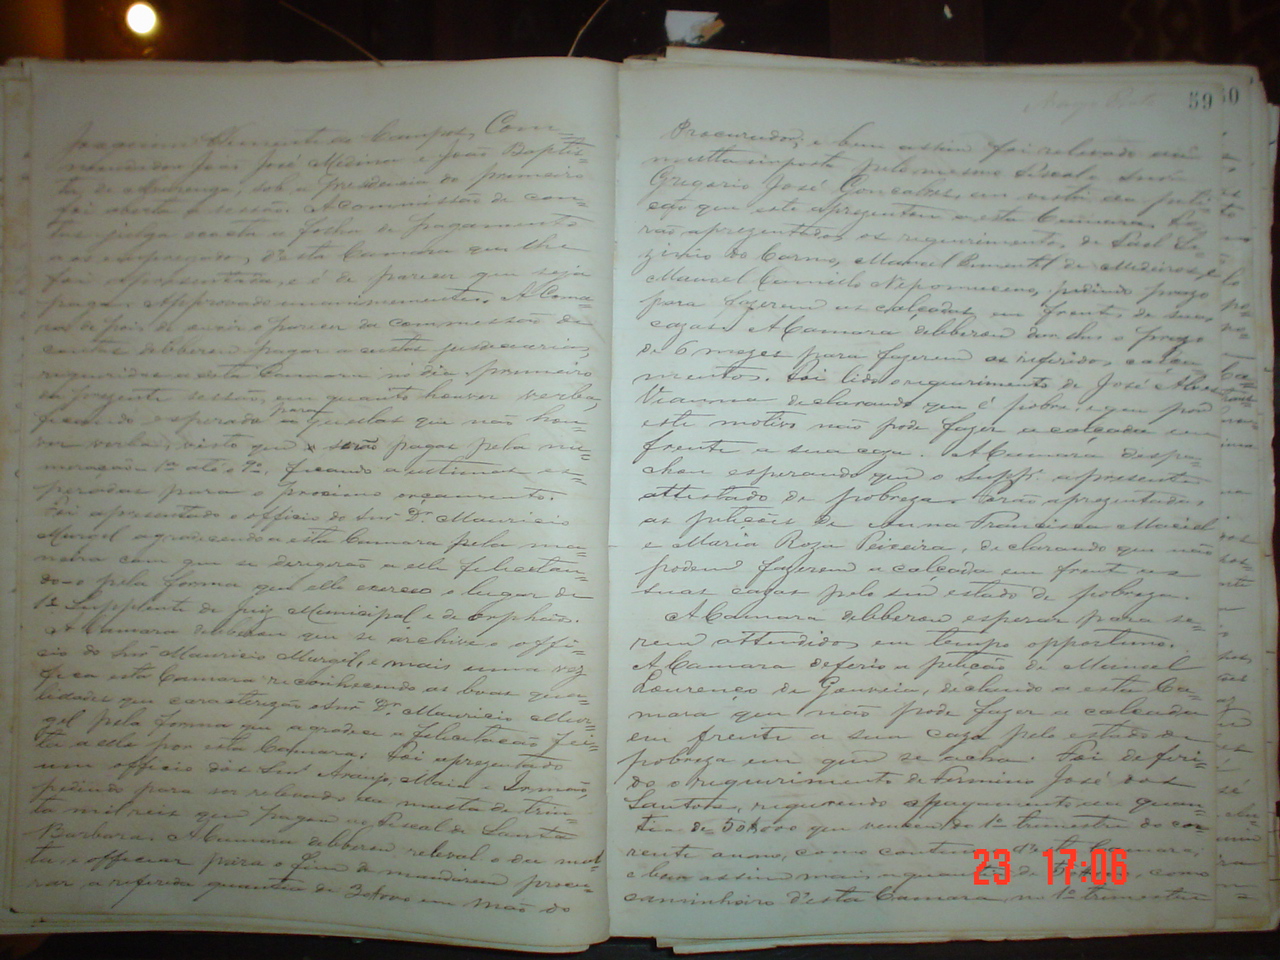 Joaquim Clemente de Campos, Com=
mendador João José Medina e João Baptis=
ta de Alvarenga, sob a presidencia do primeiro
foi aberta a sessão. A Commissão de con=
tas julga exacta a folha de pagamento
aos empregados, d'esta Camara que lhe
foi apresentada, e é de parecer que seja
paga. Approvado unanimemente. A Cama=
ra depois de ouvir o parecer da commissão de
contas delberou pagar as custas judiciarias,
requeridas a esta Camara no dia primeiro
da prezente sessão, em quanto houver verba,
ficando esperado para aquellas que não hou=
ver verba, visto que serão pagas pela nu=
meração 1º até o 9º, ficando as ultimas es=
peradas para o proximo orçamento.
Foi apresentado o officio do Snr Dr. Mauricio
Murgel agradecendo a esta Camara pela ma=
neira com que se derigirão a elle felicitan=
do-o pela forma que elle exerceo o lugar de
1º Supplente de Juiz Municipal e de Orphãos.
A Camara delberou que se archive o offi=
cio do Snr Mauricio Murgel, e mais uma vez
fica esta Camara reconhecendo as boas qua=
lidades que caracterizão o Snr Dr. Mauricio Mur=
gel pela forma que agradece a felicitação fei=
ta a elle por esta Camara. Foi apresentado
um officio dos Snrs Araujo, Maia e Irmão,
pedindo para ser relevado da multa de trin=
ta mil reis que pagou ao Fiscal de Santa
Barbara. A Camara delberou releval-o da mul=
ta e officiar para o fim de mandarem procu=
rar a referida quantia de 30$000 em mão do
59
50
Procurador, e bem assim foi relevado da
multa imposta pelo mesmo Fiscal o Snr
Gregorio José Gonçalves, em vista da peti=
ção que este apresentou a esta Camara. Fo=
rão apresentados os requerimentos de
do Carmo, Manoel Pimentel de Medeiros, e
Manoel Camillo Nepomuceno, pedindo prazo
para fazerem as calçadas em frente de suas
cazas. A Camara delberou dar-lhes o prazo
de 6 mezes para fazerem os referidos calça=
mentos. Foi lido o requerimento de José Alves
Vianna declarando que é pobre e que por
este motivo não pode fazer a calçada em
frente a sua caza. A Camara despa=
chou esperando que o Suppe. apresente
attestado de pobreza. Forão apresentadas
as petições de Anna Francisca Maciel
e Maria Roza Peixeira, declarando que não
podem fazerem a calçada em frente as
suas cazas pelo seu estado de pobreza.
A Camara delberou esperar para se=
rem attendidos em tempo opportuno.
A Camara deferio a petição de Manoel
Lourenço de Gouveia, declarando a esta Ca=
mara que não pode fazer a calçada
em frente a sua caza pelo estado de
pobreza em que se acha. Foi deferi=
do o requerimento de Firmino José dos
Santos, requerendo o pagamento em quan=
tia de 50$000 que venceu do 1º trimestre do cor=
rente anno, como continuo d'esta Camara,
e bem assim mais a quantia de como
caminheiro d'esta Camara, no 1º trimestre
23 17:06